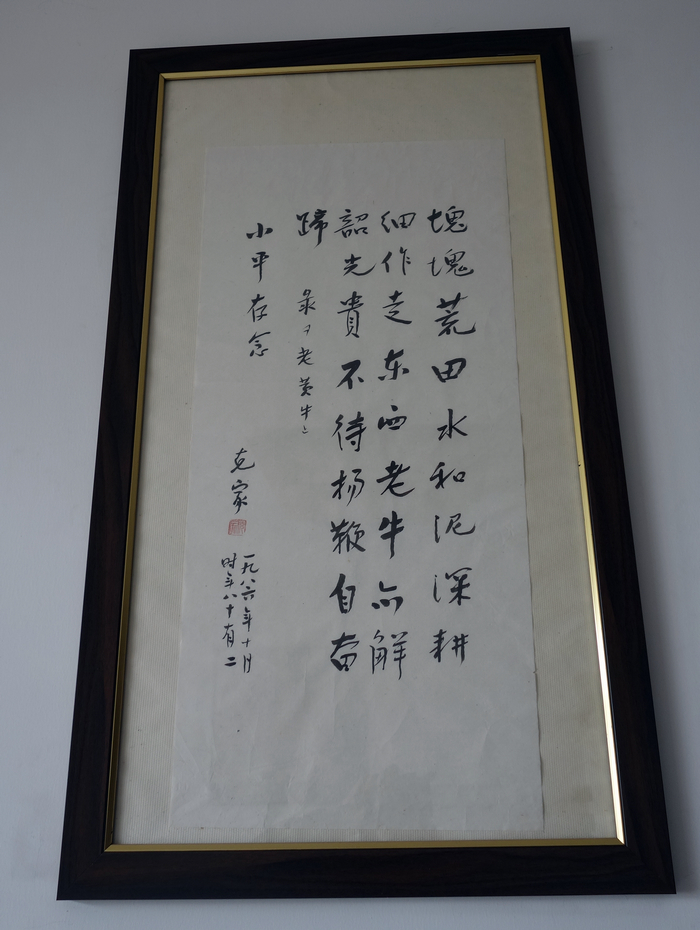 塊塊荒田水和泥深耕
细作走东西老牛亦解
韶光貴不待扬鞭自奋
蹄 录《老黄牛》
小平存念
克家
一九八六年十月
时年八十有二